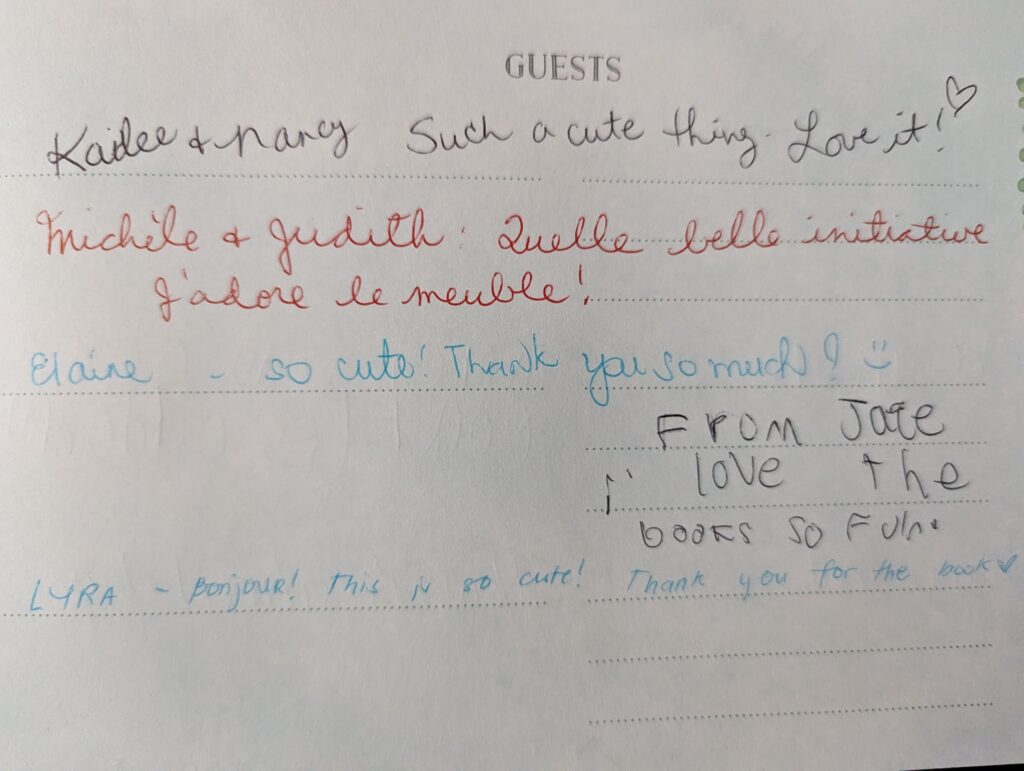 GUESTS
Kailee & Nancy Such a cute thing. Love it!
Michèle & Judith: Quelle belle initiative
J'adore le meuble!
Elaine - so cute! Thank you so much! :)
From
i love the
books so Fun.
LYRA - Bonjour! This is so cute! Thank you for the book